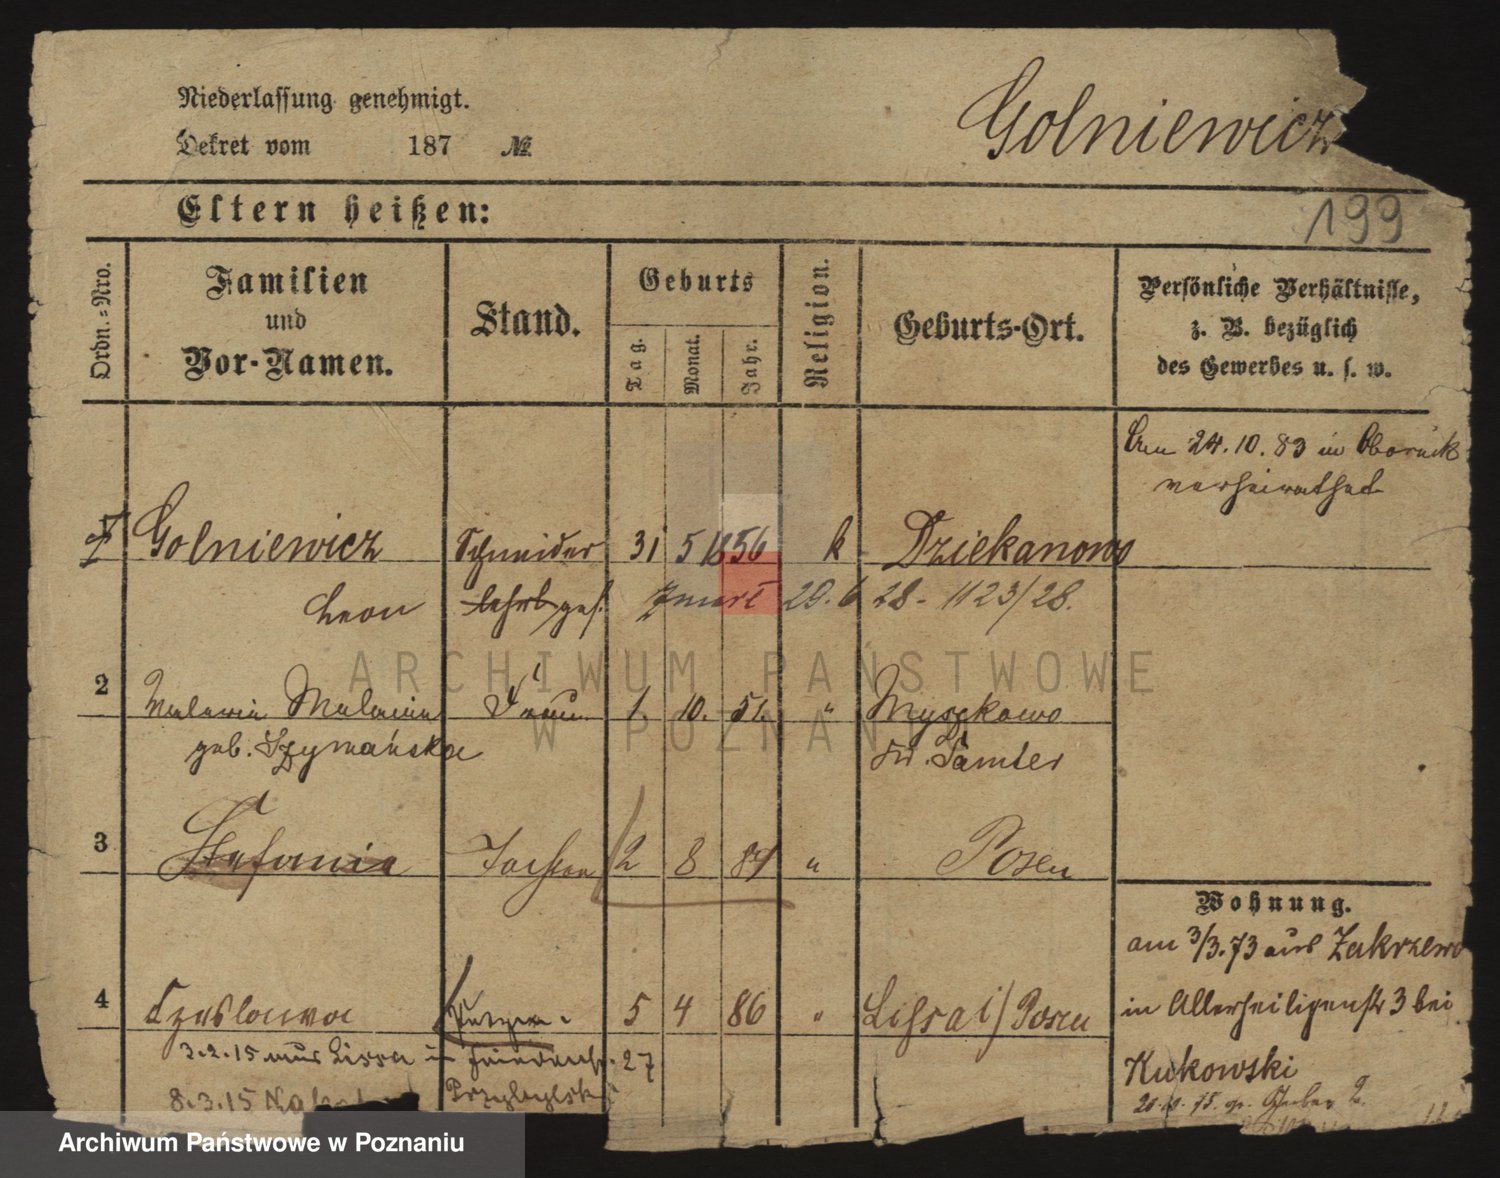 Niederlassung genehmigt.
Dekret vom 187 №
Golniewicz
Eltern heißen:
199
Ordn.=Nro.
Familien
und
Vor-Namen.
Stand.
Geburts
Tag.
Monat.
Jahr.
Religion.
Geburts-Ort.
Persönliche Verhältnisse,
z. B. bezüglich
des Gewerbes u. s. w.
Am 24.10.83 in Obornik
verheirathet
1 Golniewicz Schneider 31 5 1856 k Dziekanowo
Leon lehrl ges. zmarł 20.6 28 - 1123/28.
2 Melanie Frau 1. 10. 51. " Myszkowo
geb. Szymańska Kr. Samter
3 Stefania Tochter 2 8 84 " Posen
Wohnung.
am 3/3.73 aus Zakrzewo
4 Czeslawa 5 4 86 " Lissa i/Posen
in Allerheiligenstr 3 bei
3.2.15 aus Lissa 27
Kukowski
8.3.15 Przybylski
20.10.75.
ARCHIWUM PAŃSTWOWE
W POZNANIU
Archiwum Państwowe w Poznaniu